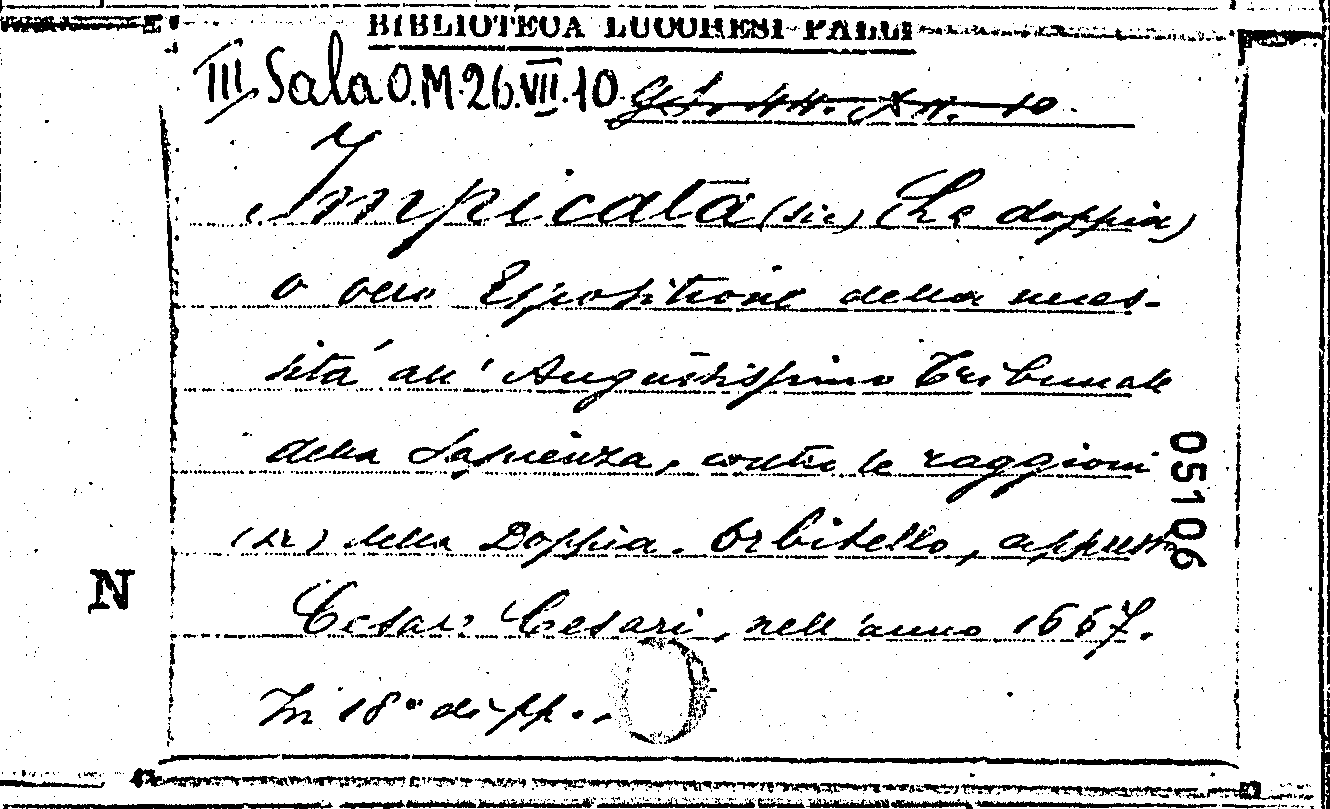 BIBLIOTECA LUCCHESI-PALLI
III Sala O.M. 26.VII.10
Impicata (sic) (La doppia)
o vero Espositione della neces-
sità all' Augustissimo Tribunale
della Sapienza, contro le raggioni
(sic) della Doppia. Orbitello, appresso
Cesari Cesari, nell'anno 1667.
In 18° di pp. ..
05106
N